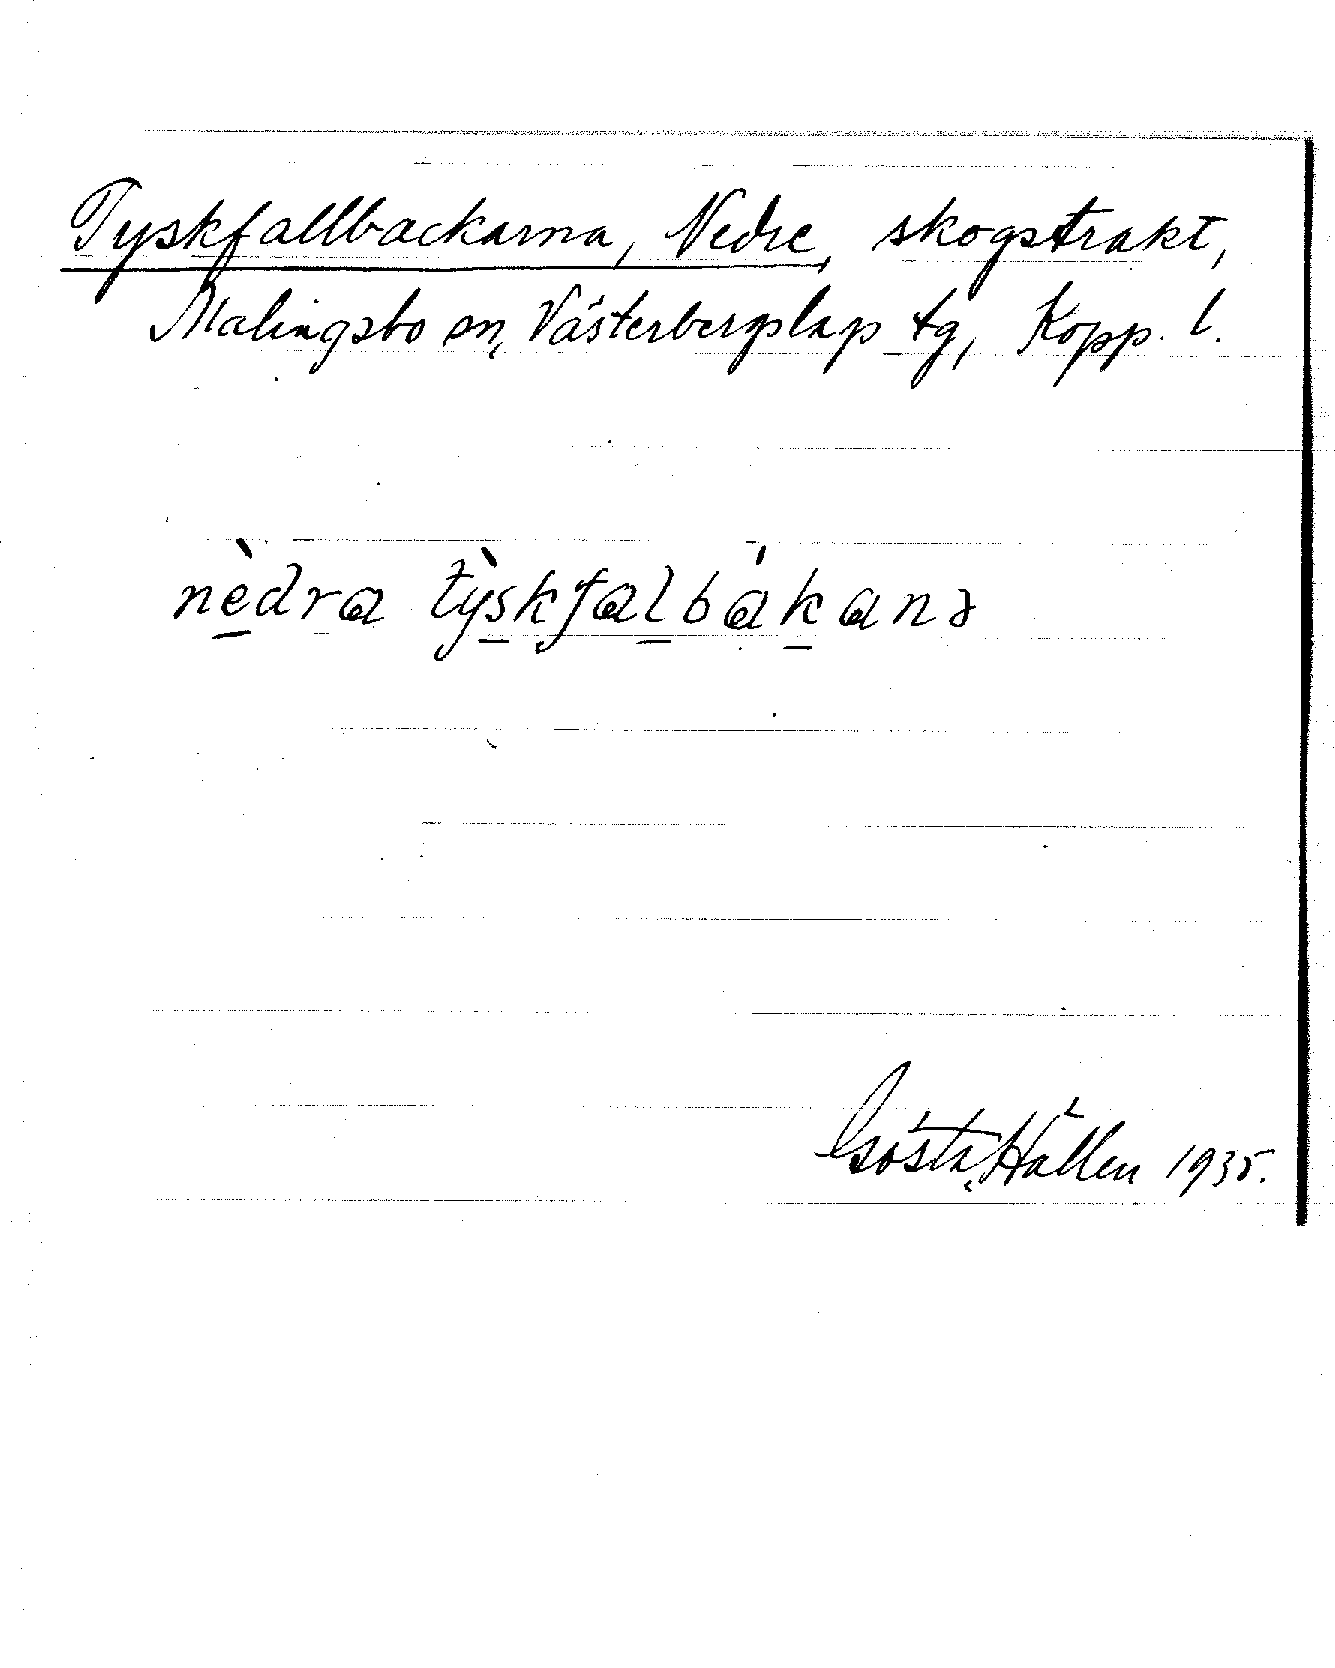 Tyskfallbackarna, Nedre, skogstrakt,
Malingsbo sn, Västerbergslags tg, Kopp. l.
nèdra tỳskfalbákanə
Gösta Hållen 1935.